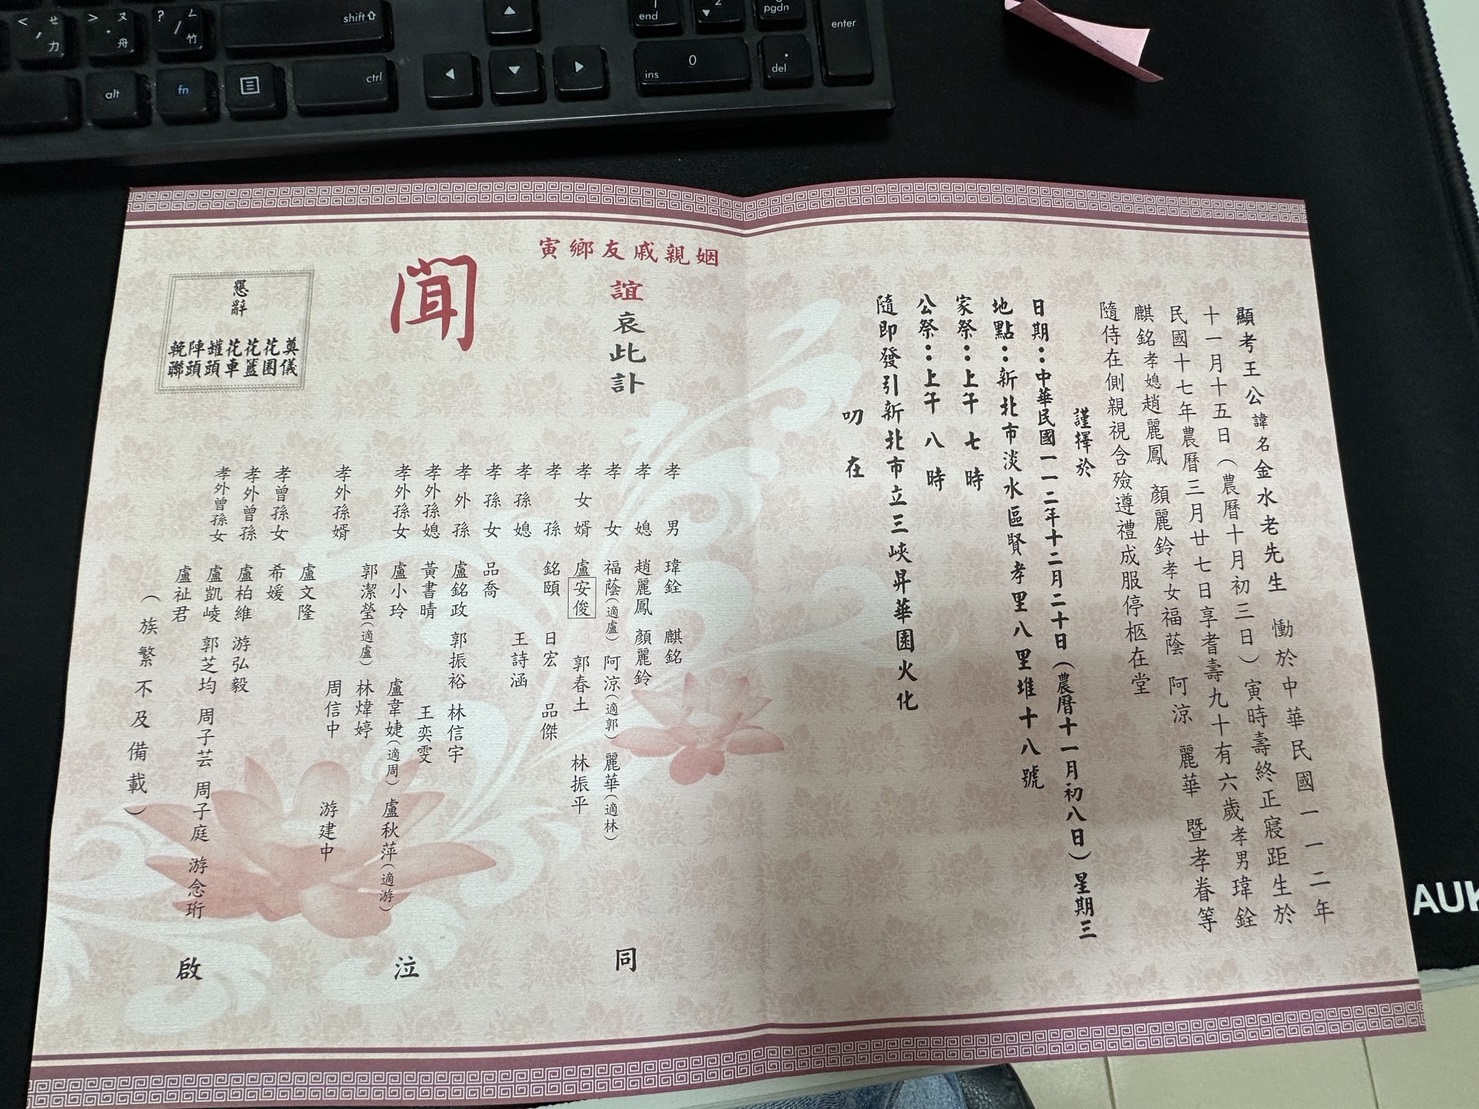 顯考王公諱名金水老先生 慟於中華民國一一二年
十一月十五日(農曆十月初三日)寅時壽終正寢距生於
民國十七年農曆三月廿七日享耆壽九十有六歲孝男瑋銓
麒銘孝媳趙麗鳳 顏麗鈴孝女福蔭 阿涼 麗華 暨孝眷等
隨侍在側親視含殮遵禮成服停柩在堂
謹擇於
日期:中華民國一一二年十二月二十日(農曆十一月初八日)星期三
地點:新北市淡水區賢孝里八里堆十八號
家祭:上午 七 時
公祭:上午 八 時
隨即發引新北市立三峽昇華園火化
叨 在
姻親戚友鄉寅
誼哀此訃
聞
孝男 瑋銓 麒銘
孝媳 趙麗鳳 顏麗鈴
孝女 福蔭(適盧) 阿涼(適郭) 麗華(適林)
孝女婿 盧安俊 郭春土 林振平
孝孫 銘頤 日宏 品傑
孝孫媳 王詩涵
孝孫女 品喬
孝外孫 盧銘政 郭振裕 林信宇
孝外孫媳 黃書晴 王奕雯
孝外孫女 盧小玲 盧韋婕(適周) 盧秋萍(適游)
郭潔瑩(適盧) 林煒婷
孝外孫婿 周信中 游建中
盧文隆
孝曾孫女 希媛
孝外曾孫 盧柏維 游弘毅
孝外曾孫女 盧凱崚 郭芝均 周子芸 周子庭 游念珩
盧祉君
(族繁不及備載)
同
泣
啟
懇辭
奠儀
花圈
花籃
花車
罐頭
陣頭
輓聯
shift
alt
fn
ctrl
end
ins
0
2
pgdn
del
enter
ㄝ
ㄡ
ㄥ
力
舟
竹
AUK